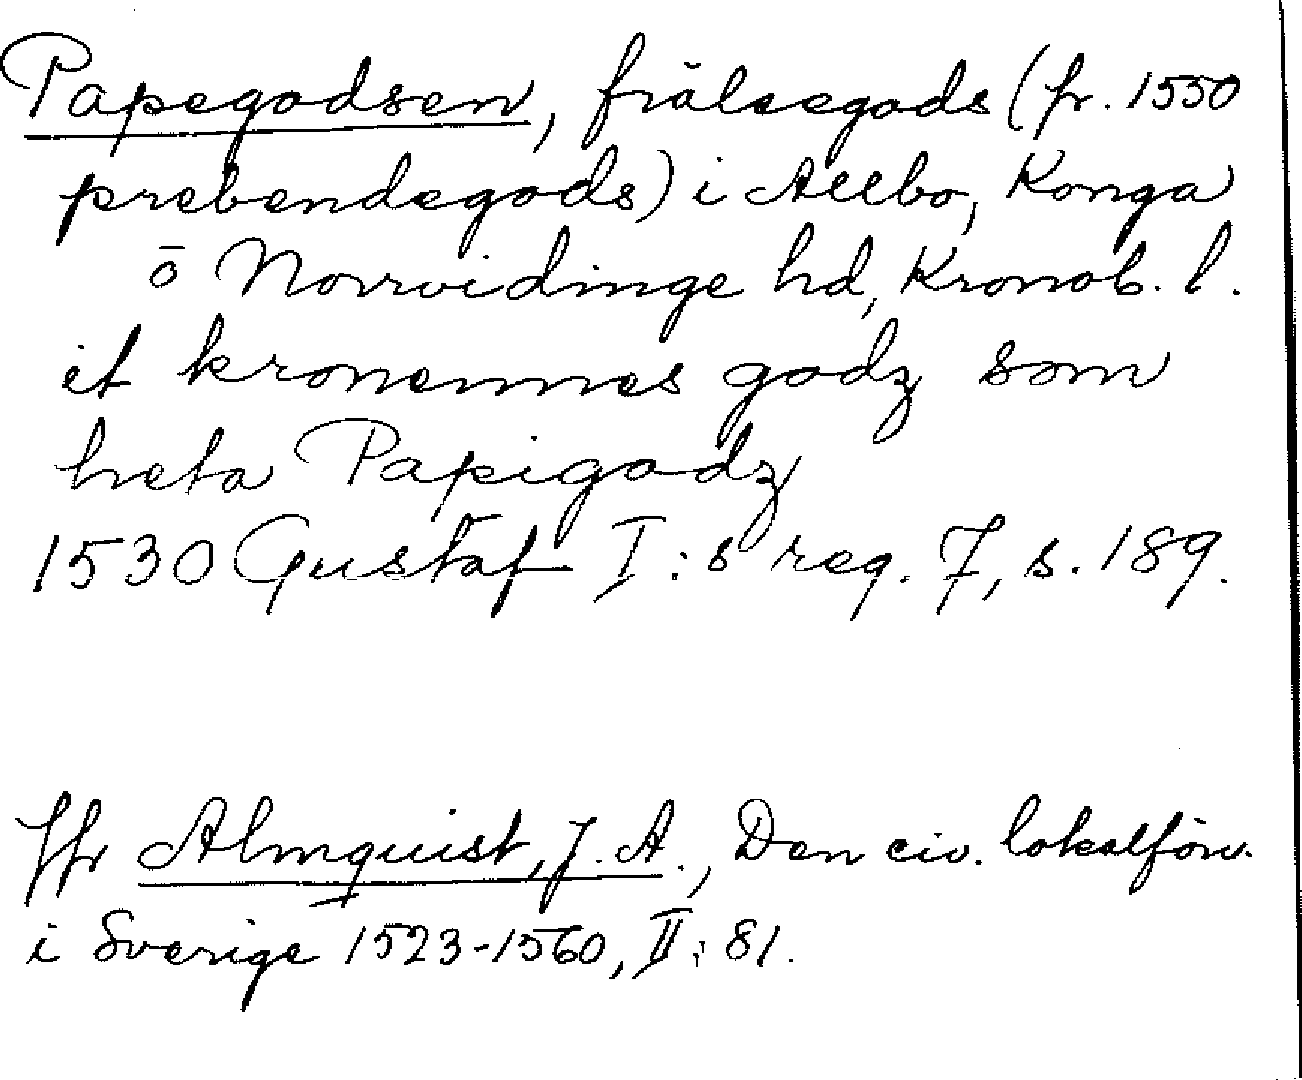 Papegodsen, frälsegods (fr. 1550
prebendegods) i Allbo, Konga
ō Norrvidinge hd, Kronob. l.
et kronennes godz som
heta Papigodz
1530 Gustaf I:s reg. 7, s. 189.
Jfr Almquist, J. A., Den civ. lokalförv.
i Sverige 1523-1560, II: 81.